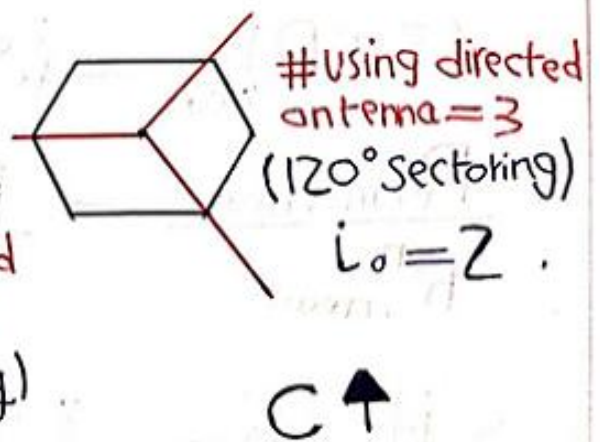 #using directed
antenna=3
(120°sectoring)
d
i₀=2.
g)
C↑